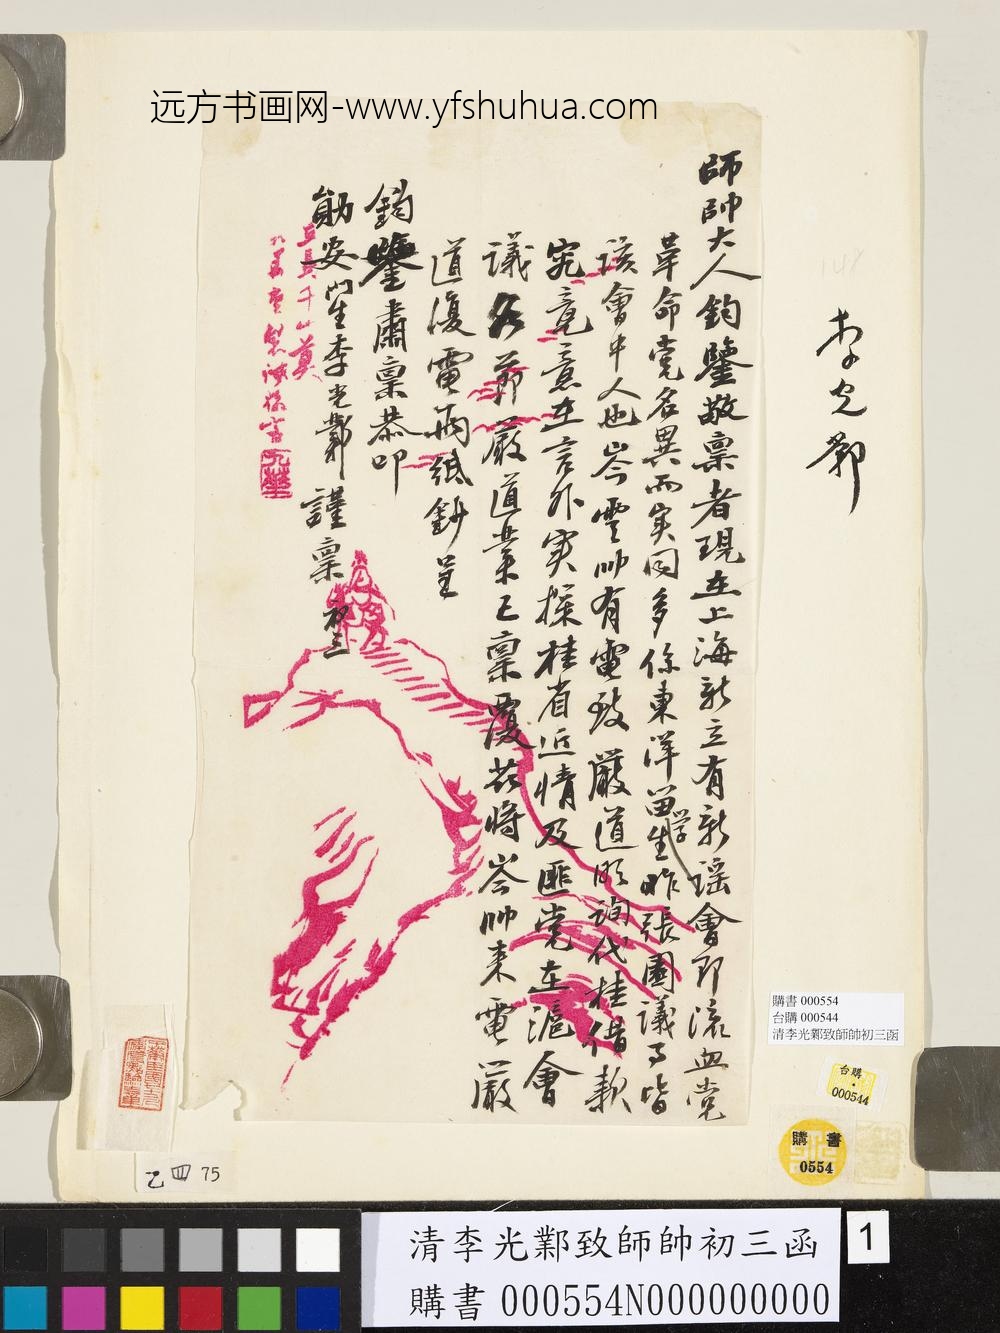 远方书画网-www.yfshuhua.com
師帥大人鈞鑒敬稟者現在上海新立有新瑤會即流血党
革命党名異而实同多係東洋留学生昨張園議事皆
該會中人也岑雲帥有電致嚴道明詢代桂借款
究竟意在言外实探桂省近情及匪党在滬會
議各節嚴道業已稟覆茲將岑帥来電嚴
道復電兩紙鈔呈
鈞鑒肅稟恭叩
勛安門生李光鄴謹稟初三
九華
李光鄴
購書 000554
台購 000544
清李光鄴致師帥初三函
台購
000544
購書
0554
乙四 75
清李光鄴致師帥初三函
購書 000554N000000000
1